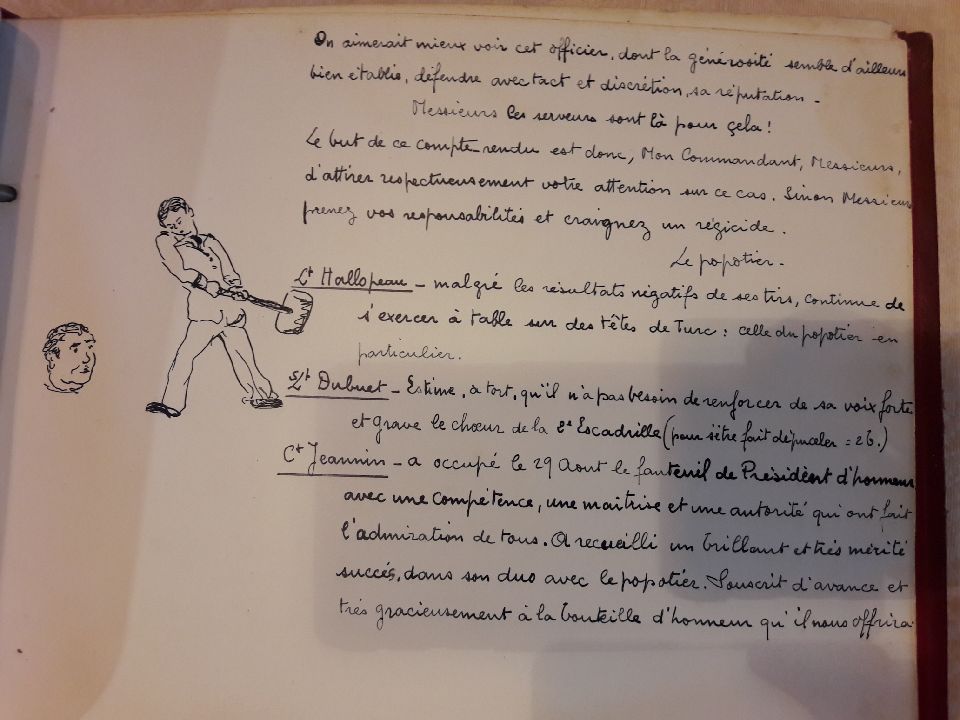 On aimerait mieux voir cet officier, dont la générosité semble d'ailleurs
bien etablie, défendre avec tact et discrétion, sa réputation -
Messieurs les serveurs sont là pour çela!
Le but de ce compte-rendu est donc, Mon Commandant, Messieurs,
d'attirer respectueusement votre attention sur ce cas. Sinon Messieurs
prenez vos responsabilités et craignez un régicide.
Le popotier-
Lt Hallopeau - malgré les résultats négatifs de ses tirs, continue de
s'exercer à table sur des têtes de Turc : celle du popotier en
particulier.
S/Lt Dubuet - Estime, à tort, qu'il n'a pas besoin de renforcer de sa voix forte
et grave le chœur de la 2e Escadrille (pour s'être fait dépuceler = 2b.)
Ct Jeannin - a occupé le 29 Aout le fauteuil de Président d'honneur
avec une compétence, une maîtrise et une autorité qui ont fait
l'admiration de tous. A recueilli un brillant et très mérité
succés, dans son duo avec le popotier. Souscrit d'avance et
trés gracieusement à la bouteille d'honneur qu'il nous offrira.